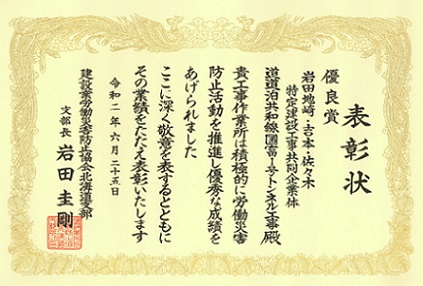 表彰状
優良賞
岩田地崎・吉本・佐々木
特定建設工事共同企業体
道道泊共和線（国富1号トンネル工事）殿
貴工事作業所は積極的に労働災害
防止活動を推進し優秀な成績を
あげられました
ここに深く敬意を表するとともに
その業績をたたえ表彰いたします
令和二年六月二十五日
建設業労働災害防止協会北海道支部
支部長 岩田圭剛